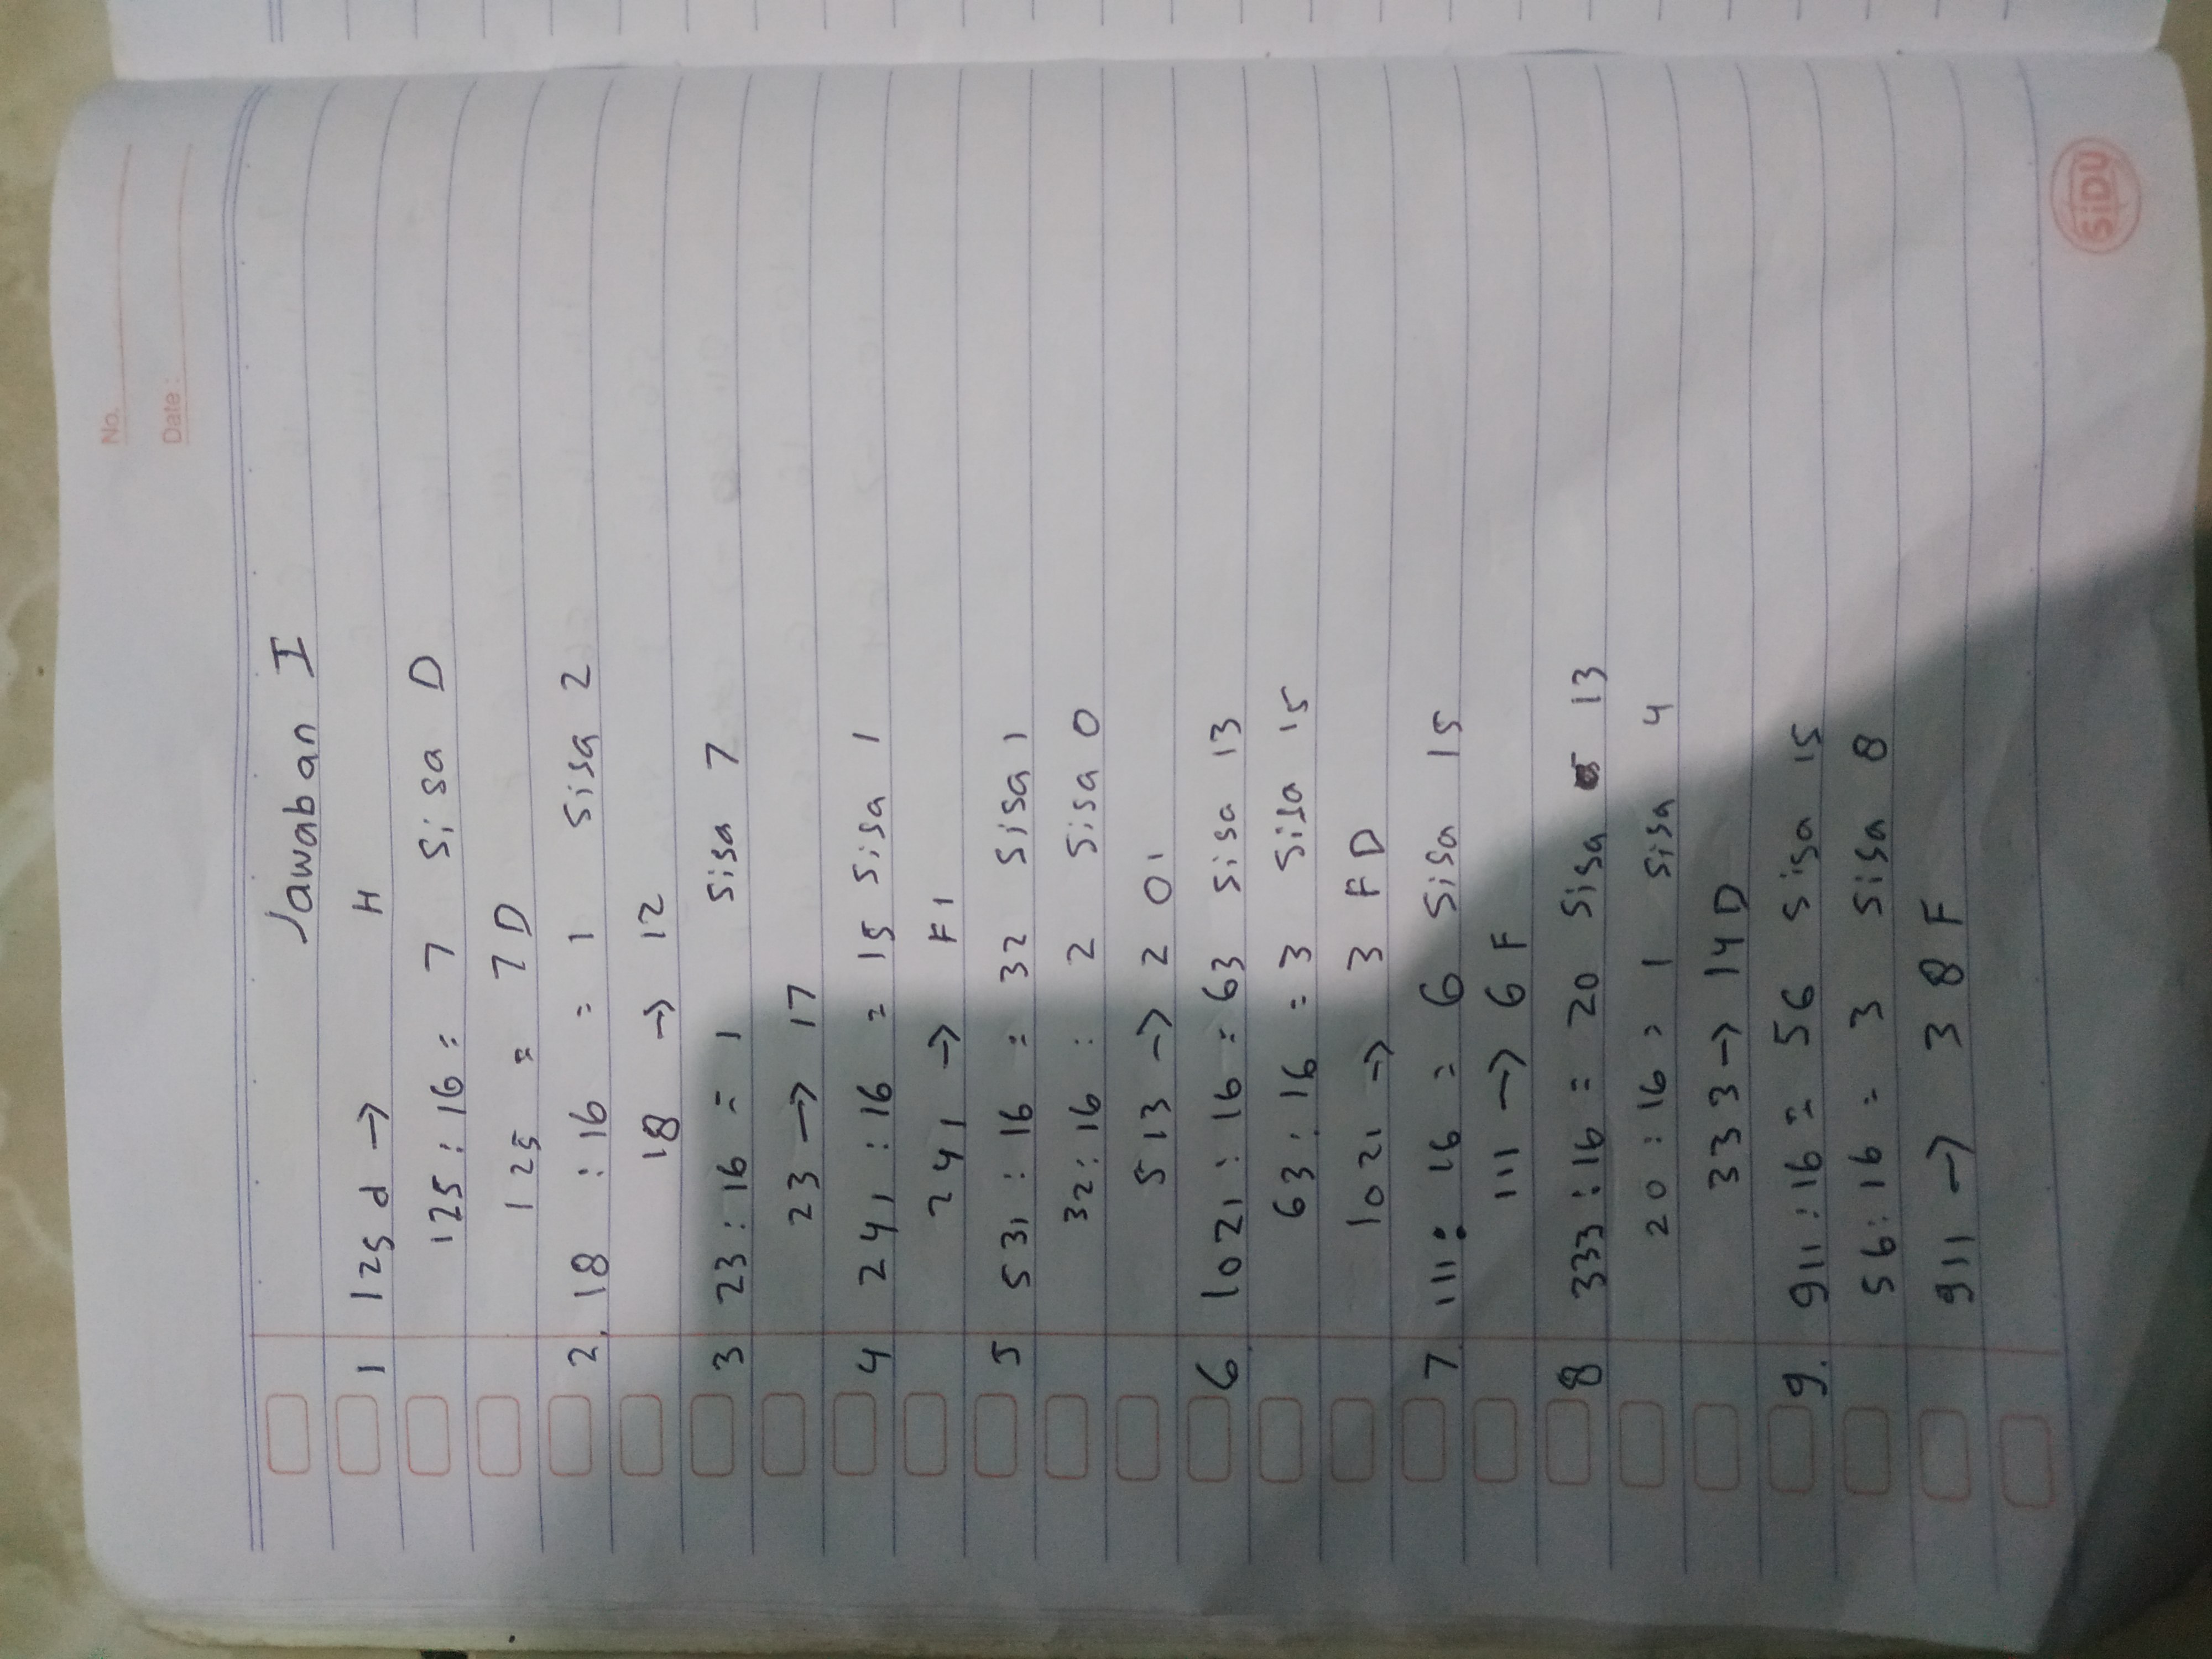 No.
Date :
Jawaban I
1 125 d → H
125 : 16 = 7 Sisa D
125 = 7D
2. 18 : 16 = 1 Sisa 2
18 → 12
3 23 : 16 = 1 Sisa 7
23 → 17
4 241 : 16 = 15 Sisa 1
241 → F1
5 531 : 16 = 32 Sisa 1
32 : 16 : 2 Sisa 0
513 → 201
6 1021 : 16 = 63 Sisa 13
63 : 16 = 3 Sisa 15
1021 → 3 FD
7. 111 : 16 = 6 Sisa 15
111 → 6 F
8 333 : 16 = 20 Sisa 13
20 : 16 = 1 Sisa 4
333 → 14D
9. 911 : 16 = 56 Sisa 15
56 : 16 = 3 Sisa 8
911 → 3 8 F
SiDU